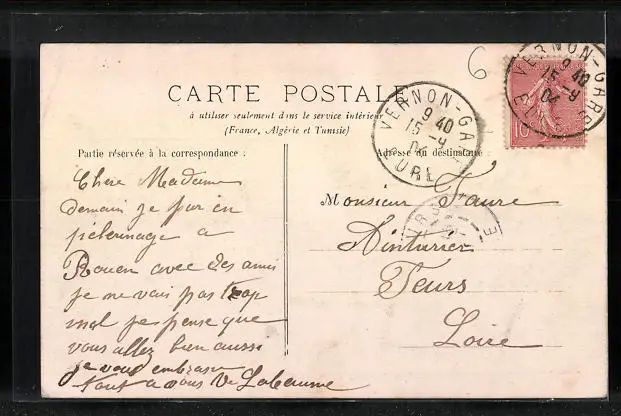 6
CARTE POSTALE
à utiliser seulement dans le service intérieur
(France, Algérie et Tunisie)
Partie réservée à la correspondance :
Adresse du destinataire
VERNON-GARE
9 40
15 -9
04
EURE
VERNON-GARE
9 40
15 -9
04
10
Chère Madame
demain je par en
pelerinage a
Rouen avec des amis
je ne vais pas trop
mal je pense que
vous allez bien aussi
je vous embrasse
tout a vous Ve Labaume
Monsieur Faure
Teinturier
Feurs
Loire